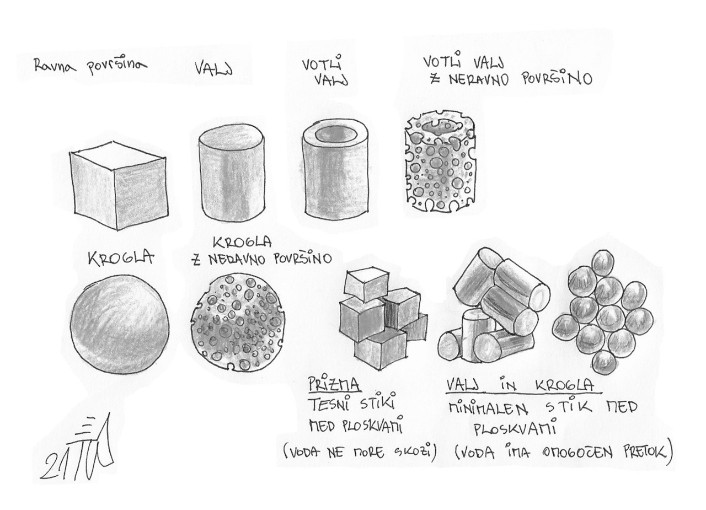 Ravna površina
VALJ
VOTLI
VALJ
VOTLI VALJ
Z NERAVNO POVRŠINO
KROGLA
KROGLA
Z NERAVNO POVRŠINO
PRIZMA
TESNI STIKI
MED PLOSKVAMI
(VODA NE MORE SKOZI)
VALJ IN KROGLA
MINIMALEN STIK MED
PLOSKVAMI
(VODA IMA OMOGOČEN PRETOK)